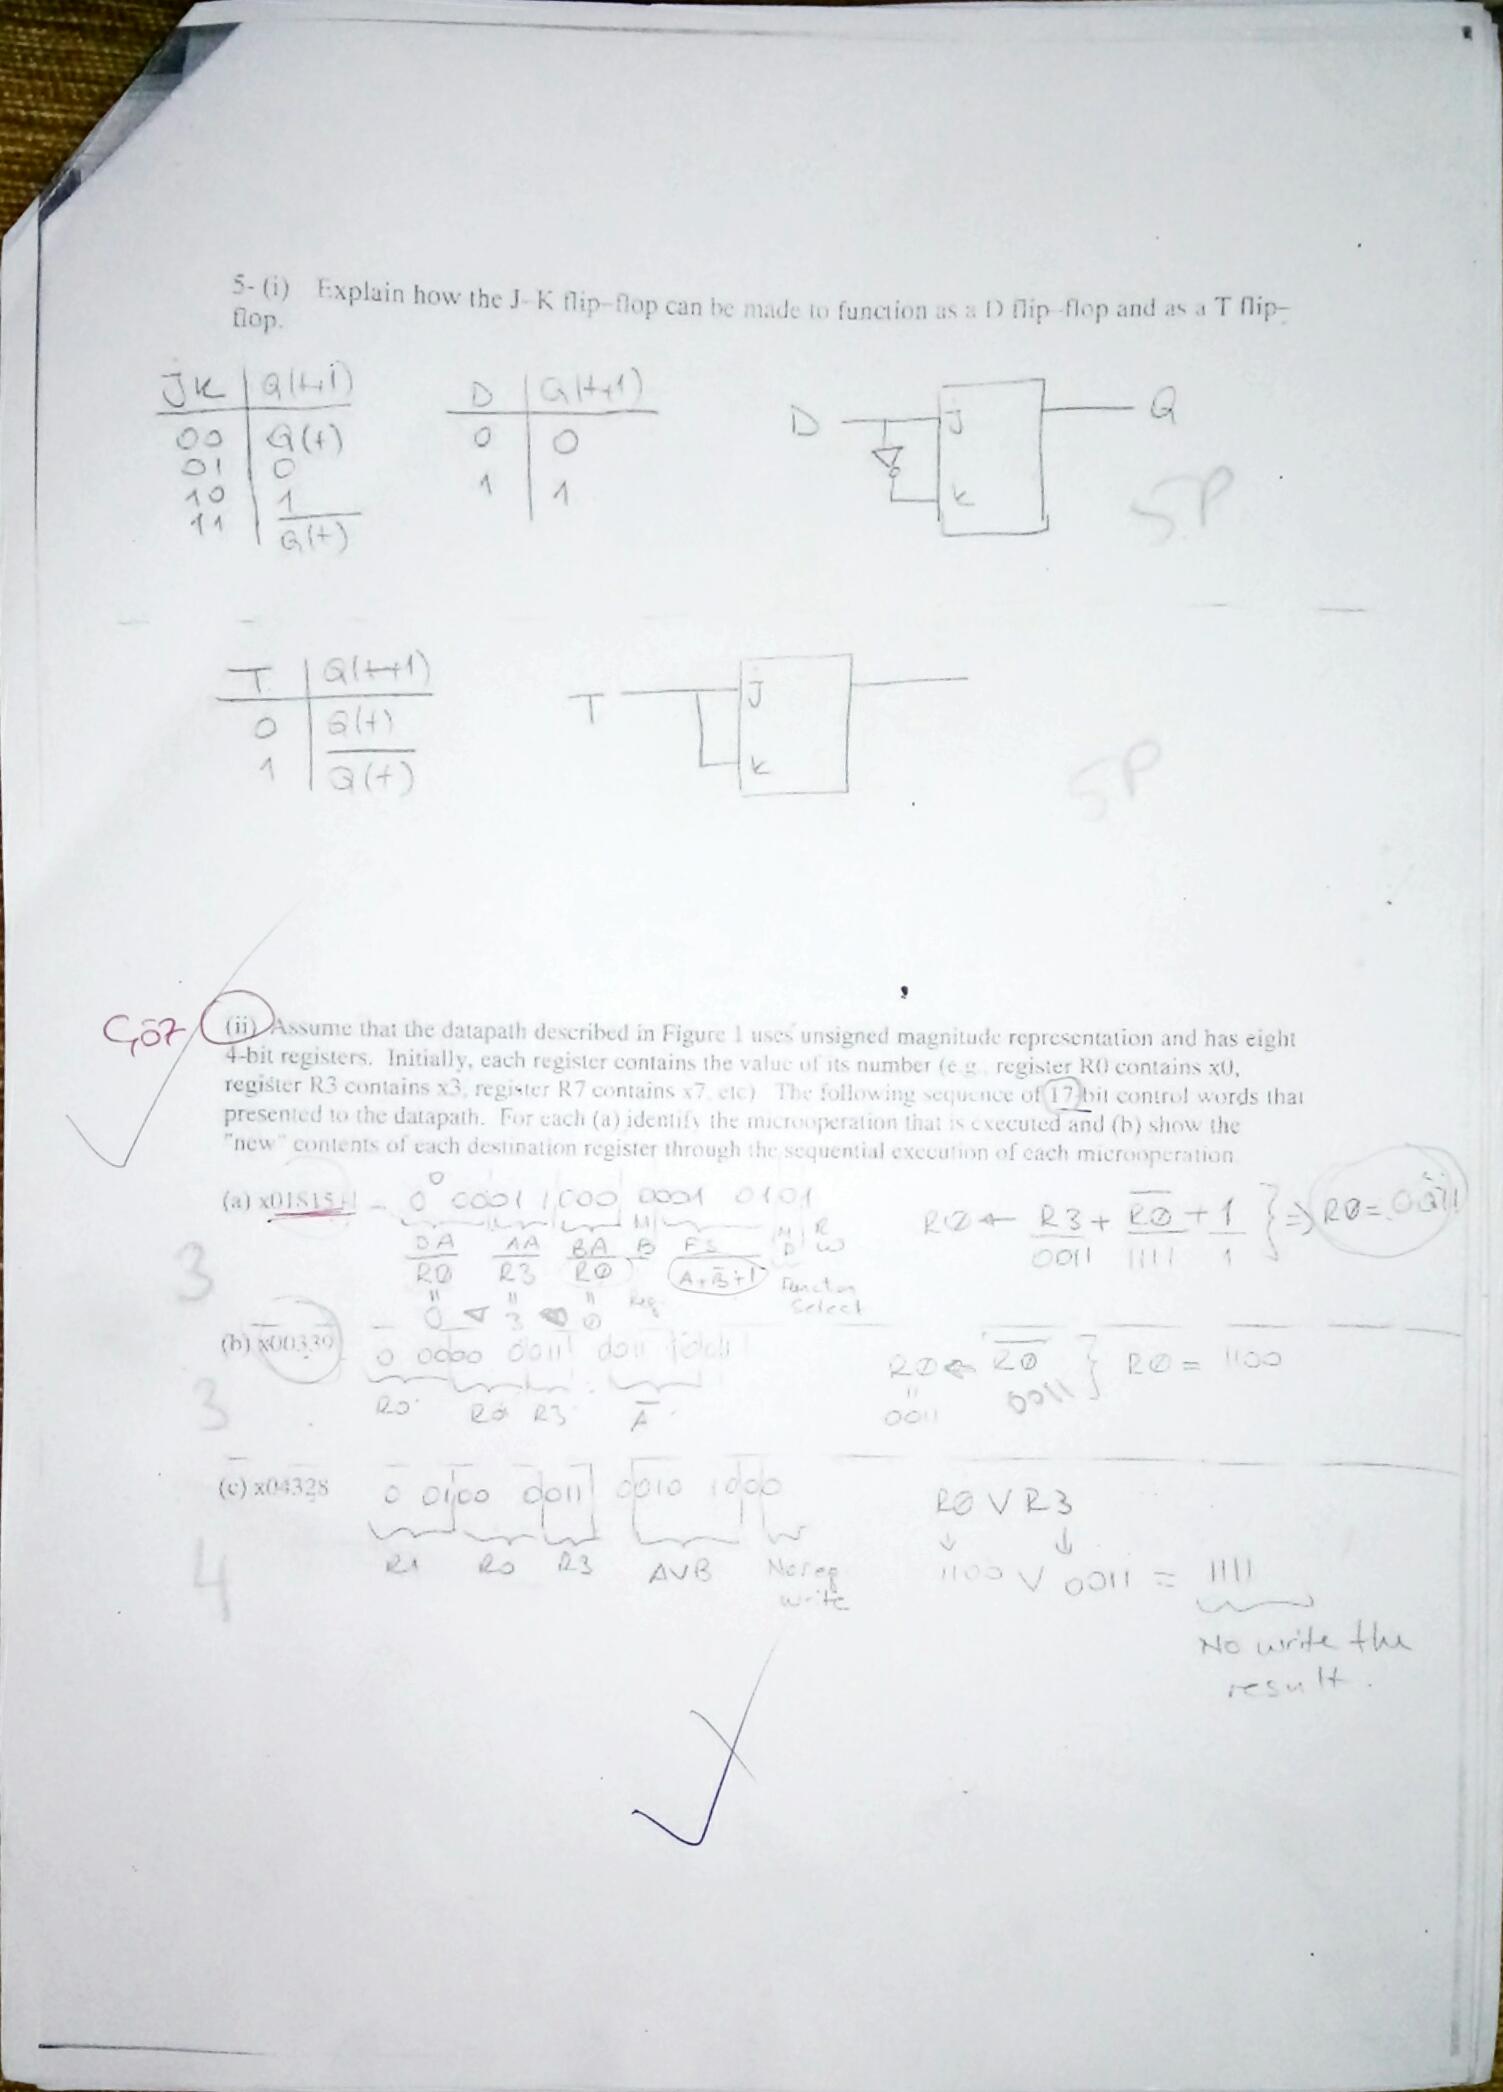 5- (i) Explain how the J-K flip-flop can be made to function as a D flip-flop and as a T flip-
flop.
JK Q(t+1)
00 Q(t)
01 0
10 1
11 Q̅(̅t̅)̅
D Q(t+1)
0 0
1 1
D J Q
K
5P
T Q(t+1)
0 Q(t)
1 Q̅(̅t̅)̅
T J
K
5P
Çöz (ii) Assume that the datapath described in Figure 1 uses unsigned magnitude representation and has eight
4-bit registers. Initially, each register contains the value of its number (e.g. register R0 contains x0,
register R3 contains x3, register R7 contains x7, etc) The following sequence of 17-bit control words that
presented to the datapath. For each (a) identify the microoperation that is executed and (b) show the
"new" contents of each destination register through the sequential execution of each microoperation
(a) 0 0001 1000 0001 0101
R0 ← R3 + R̅0̅ + 1 } ⇒ R0 = 0011
0011 1111 1
DA AA BA B FS
R0 R3 R0 A+B̅+1 Function
Select
0 3 0
3
(b) x00339 0 0000 0011 0011 1001
R0 ← R̅0̅ } R0 = 1100
0011 0011
R0 R0 R3 A̅
3
(c) x04328 0 0100 0011 0010 1000
R0 V R3
R1 R0 R3 AVB No reg
write
1100 V 0011 = 1111
4
No write the
result.